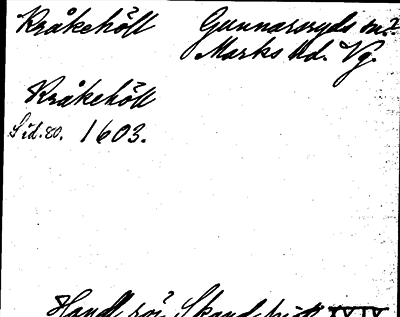 Kråkehôll Gunnarsryds sn.?
Marks Hd. Vg.
Kråkehôll
Sid. 80. 1603.
Handl. rör. Skand. hist. XXIX